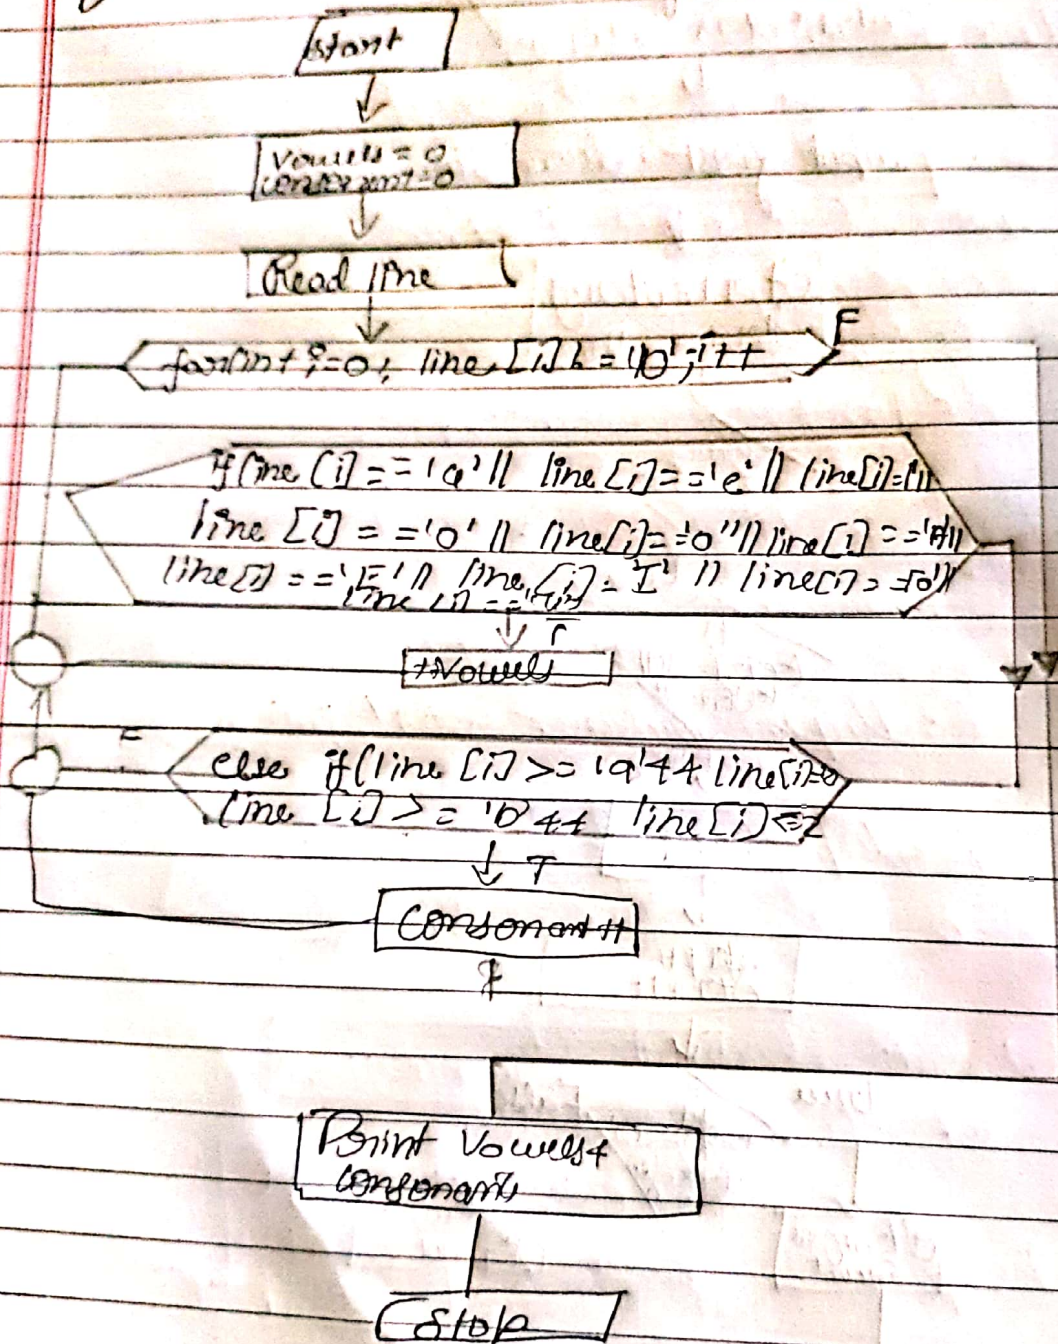 Start
Vowels = 0
consonant=0
Read line
F
for(int i=0; line[i]!='\0'; i++
if(line[i]=='a' || line[i]=='e' || line[i]=
line[i]=='o' || line[i]== || line[i]=='A' ||
line[i]=='E' || line[i]='I' || line[i]=='O' ||
line[i]==
T
++Vowels
F
else if(line[i]>='a' && line[i]
line[i]>= && line[i]<=z
T
Consonant++
Print Vowels &
consonants
Stop